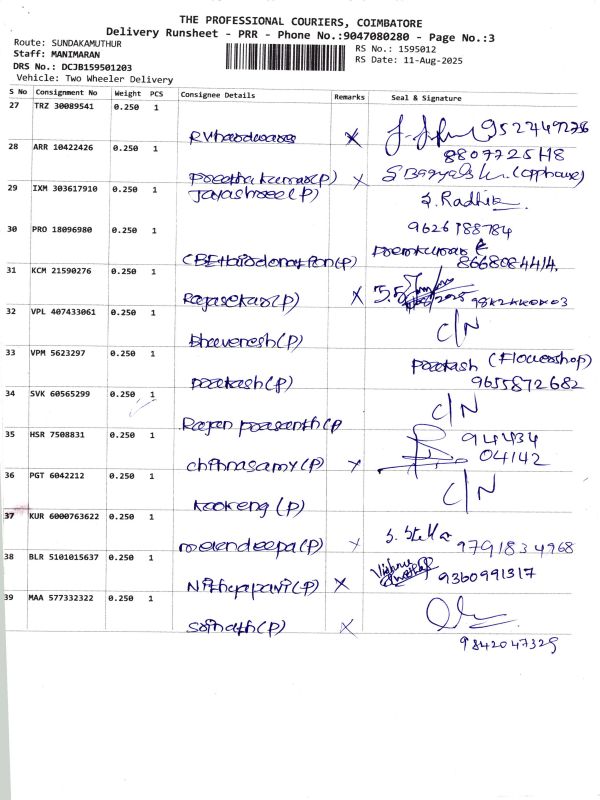 THE PROFESSIONAL COURIERS, COIMBATORE
Delivery Runsheet - PRR - Phone No.:9047080280 - Page No.:3
Route: SUNDAKAMUTHUR
Staff: MANIMARAN
DRS No.: DCJB159501203
Vehicle: Two Wheeler Delivery
RS No.: 1595012
RS Date: 11-Aug-2025
S No Consignment No Weight PCS Consignee Details Remarks Seal & Signature
27 TRZ 30089541 0.250 1
RVhardwares X 9524492 
28 ARR 10422426 0.250 1
8807722518
preetha kumar(P) X
29 IXM 303617910 0.250 1
Jayashree(P) S. Radhika
30 PRO 18096980 0.250 1
9626188784
CBE+birdonation(P) premkumar
8668084414.
31 KCM 21590276 0.250 1
Rajasekar(P) X
32 VPL 407433061 0.250 1
bhavenesh(P) C/N
33 VPM 5623297 0.250 1
prakash (Flowershop)
prakash(P) 9655872682
34 SVK 60565299 0.250 1
Rajan prasanth(P C/N
35 HSR 7508831 0.250 1
94434
chinnasamy(P) X 04142
36 PGT 6042212 0.250 1
(P) C/N
37 KUR 6000763622 0.250 1
(P) X S. Stella 9791834968
38 BLR 5101015637 0.250 1
Nithyavani(P) X 9360991317
39 MAA 577332322 0.250 1
srinath(P) X
9842047329